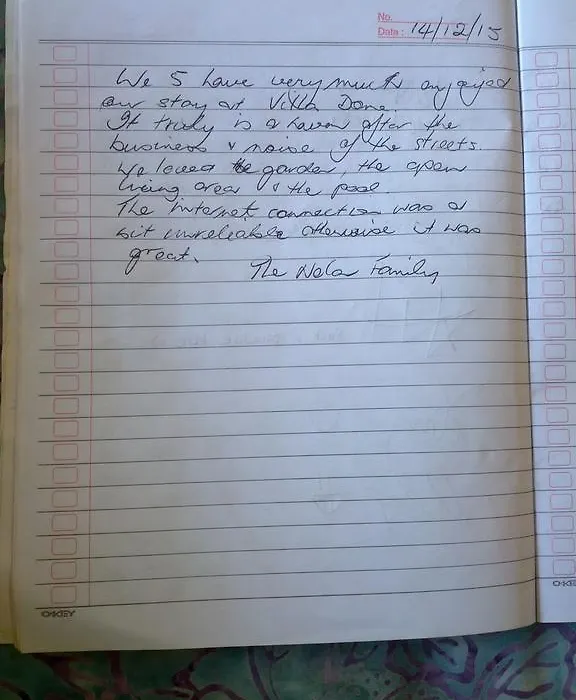 No.
Date: 14/12/15
We 5 have very much enjoyed
our stay at Villa Dane.
It truly is a haven after the
business & noise of the streets.
We loved the garden, the open
living area & the pool
The internet connection was a
bit unreliable otherwise it was
great.
The Nola Family
OKEY